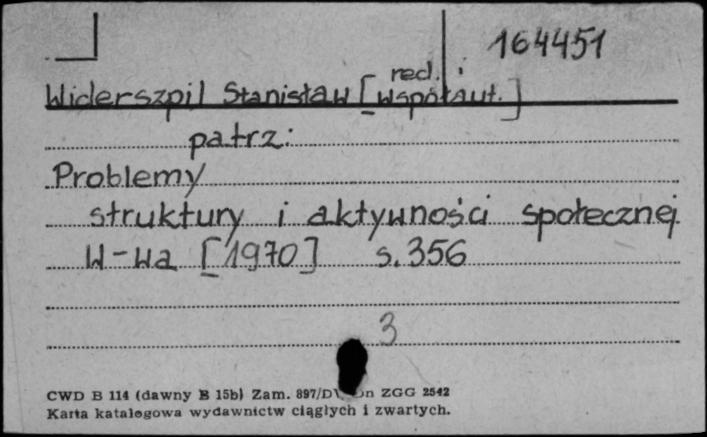 164451
red. i
Widerszpil Stanisław [współaut.]
patrz:
Problemy
struktury i aktywności społecznej
W-wa [1970] s.356
3
CWD B 114 (dawny B 15b) Zam. 897/D ZGG 2542
Karta katalogowa wydawnictw ciągłych i zwartych.